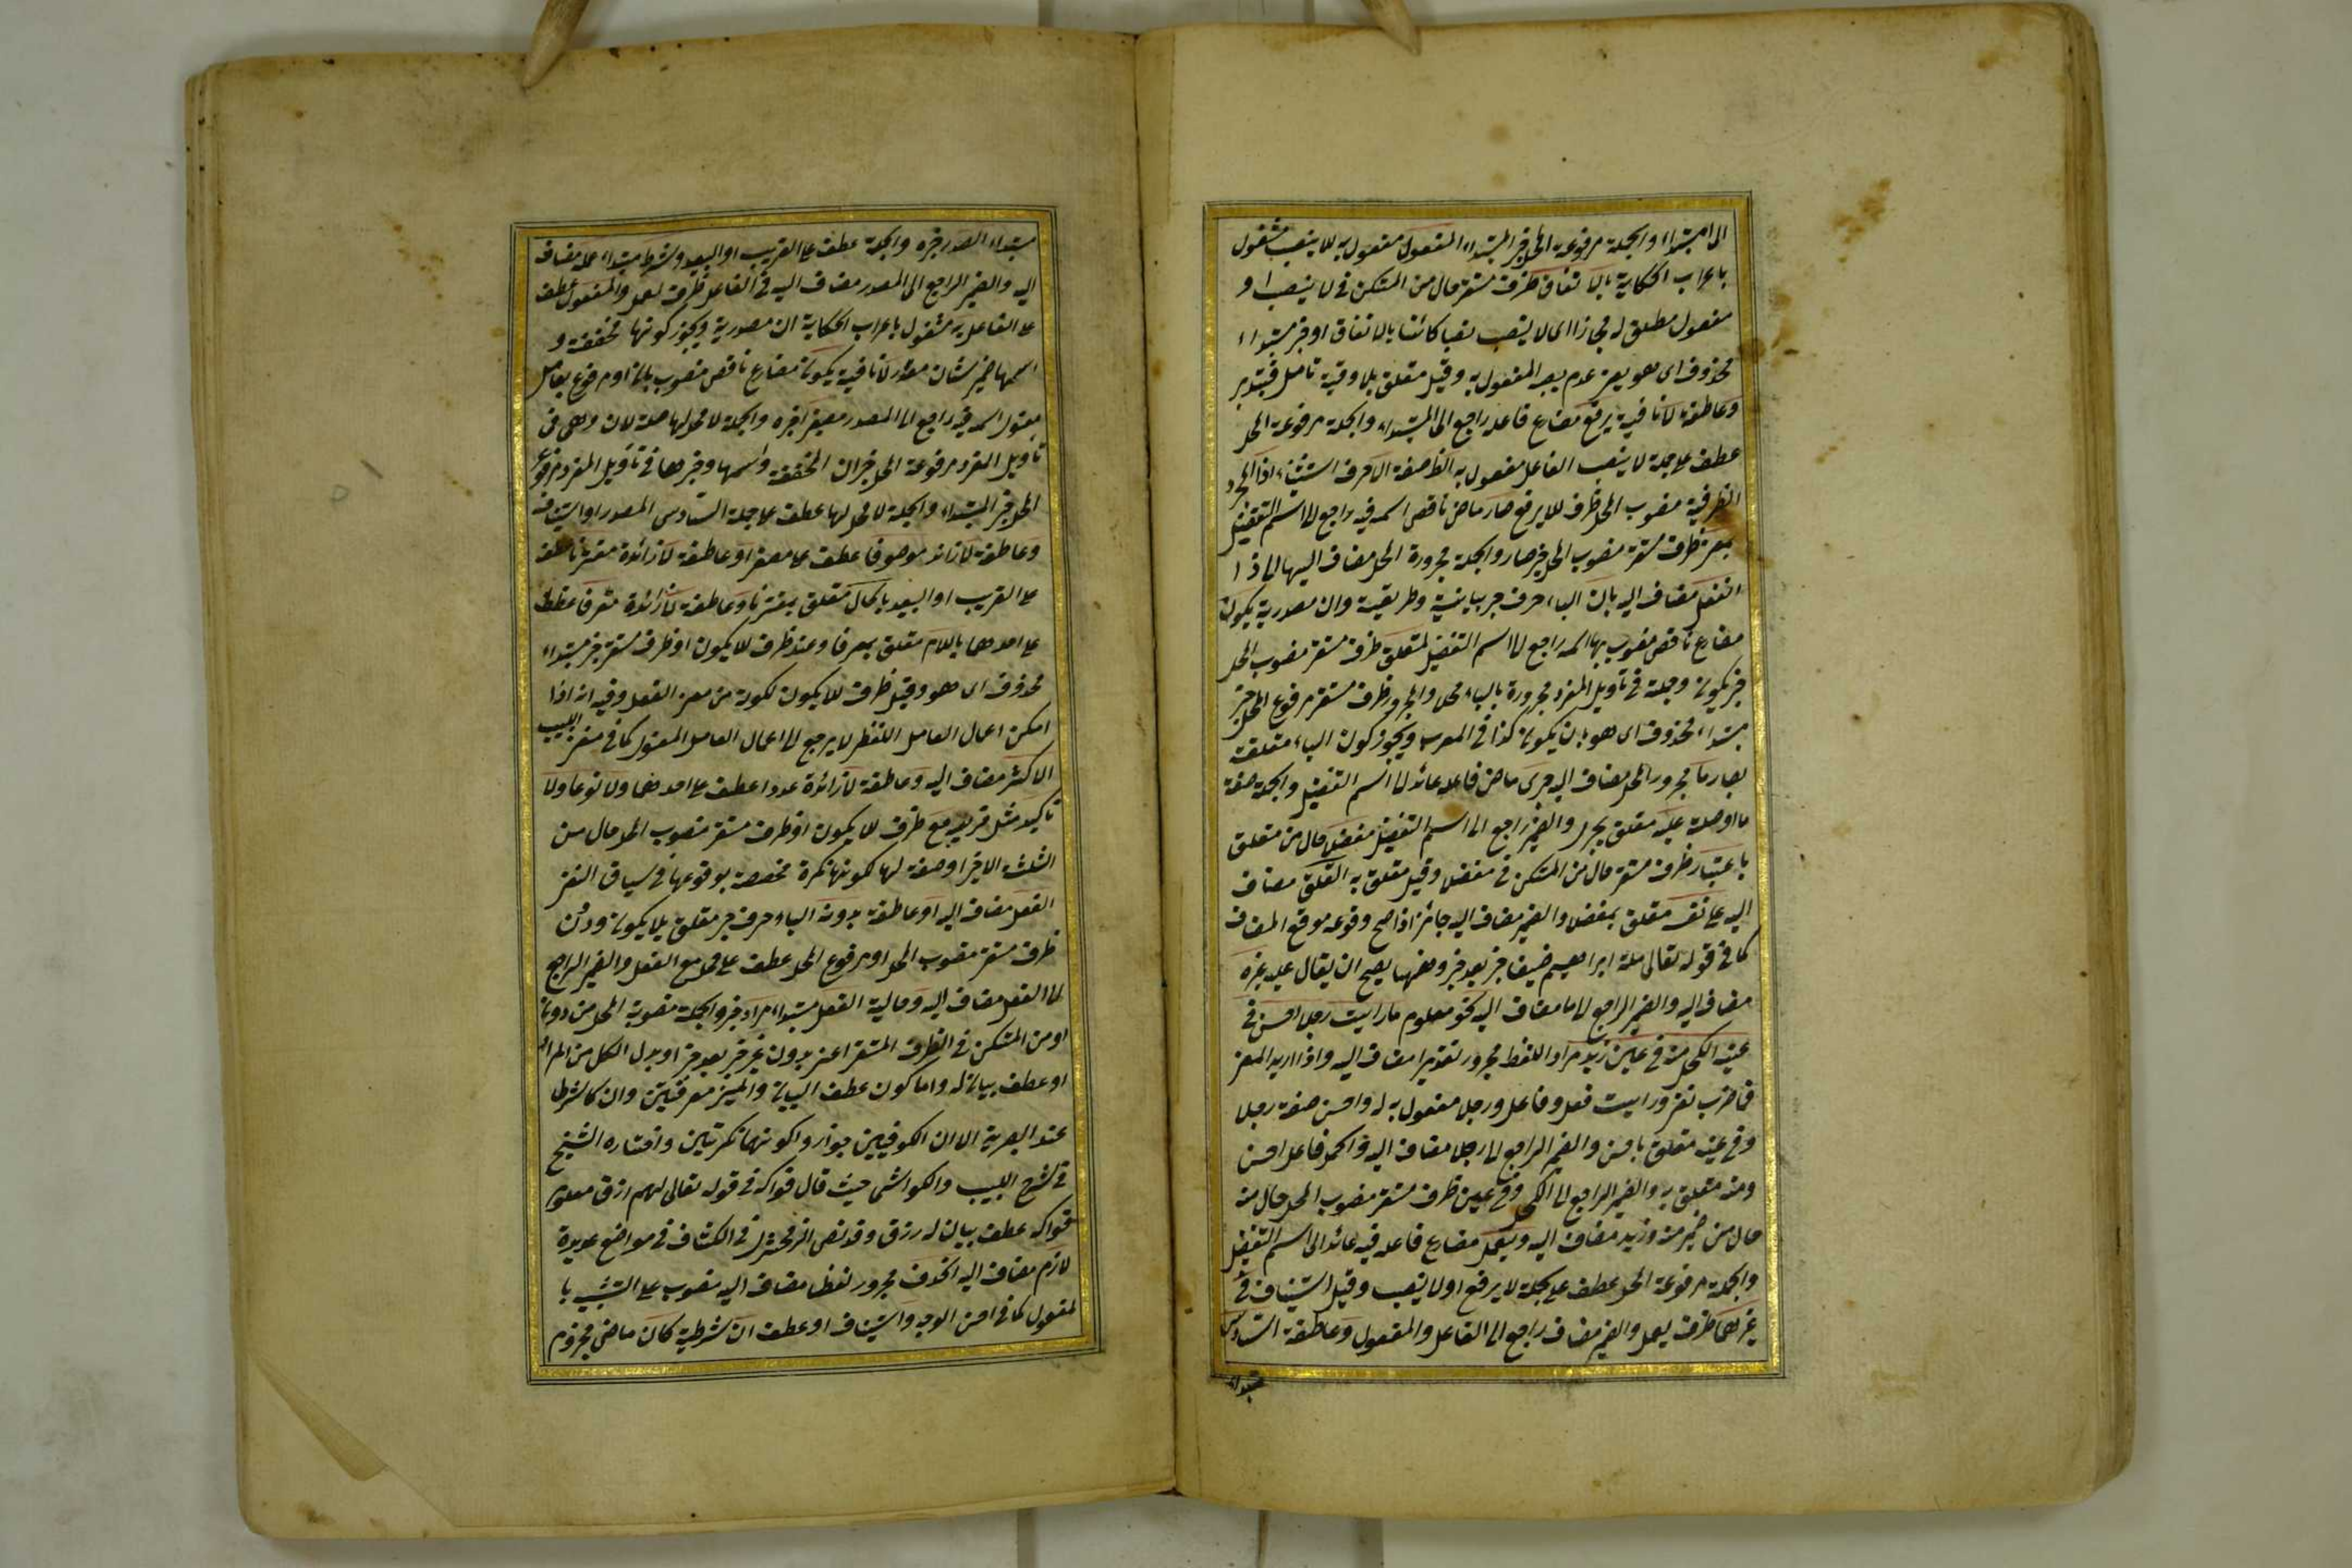 الى المبتداء والجملة مرفوعة المحل خبر المبتداء المفعول مفعول به للا ينصب مشغول
باعراب الحكاية بالاتفاق ظرف مستقر حال من المستكن في لا ينصب او
مفعول مطلق له مجازا اى لا ينصب نصبا كائنا بالاتفاق او خبر مبتداء
محذوف اى هو يعنى عدم نصبه المفعول به وقيل متعلق بلا وفيه تامل فتدبر
وعاطفة لا نافية يرفع مضارع فاعله راجع الى المبتداء والجملة مرفوعة المحل
عطف على جملة لا ينصب الفاعل مفعول به الظ صفة الا حرف استثناء اذا المجرد
الظرفية منصوب المحل ظرف للا يرفع صار ماض ناقص اسمه فيه راجع الى اسم التفضيل
بمعنى ظرف مستقر منصوب المحل خبر صار والجملة مجرورة المحل مضاف اليها لاذا
الفعل مضاف اليه بان الباء حرف جر بيانية وطريقية وان مصدرية يكون
مضارع ناقص منصوب بها اسمه راجع الى اسم التفضيل لمتعلق ظرف مستقر منصوب المحل
خبر يكون وجملته في تاويل المفرد مجرورة بالباء محلا والمجرور ظرف مستقر مرفوع المحل خبر
مبتداء محذوف اى هو بان يكون كذا في المعرب ويجوز كون الباء متعلقة
بصار ما مجرور المحل مضاف اليه جرى ماض فاعله عائد الى اسم التفضيل والجملة صفة
ما او صلة عليه متعلق بجرى والضمير راجع الى اسم التفضيل مفضلا حال من متعلق
باعتبار ظرف مستقر حال من المستكن في مفضلا وقيل متعلق به التعلق مضاف
اليه على نفسه متعلق بمفضلا والضمير مضاف اليه جائز اذا صح وقوعه موقع المضاف
كما في قوله تعالى ملة ابراهيم حنيفا خبر بعد خبر وضمها يصح ان يقال عليه غيره
مضاف اليه والضمير الراجع الى ما مضاف اليه نحو معلوم ما رايت رجلا احسن في
عينه الكحل منه في عين زيد مراد اللفظ مجرور تقديرا مضاف اليه واذا اريد المعنى
فما حرف نفى ورايت فعل وفاعل ورجلا مفعول به له واحسن صفة رجلا
وفي عينه متعلق باحسن والضمير الراجع الى رجلا مضاف اليه والكحل فاعل احسن
ومنه متعلق به والضمير الراجع الى الكحل وفي عين ظرف مستقر منصوب المحل حال منه
حال من ضمير منه وزيد مضاف اليه ويعمل مضارع فاعله فيه عائد الى اسم التفضيل
والجملة مرفوعة المحل عطف على جملة لا يرفع او لا ينصب وقيل استيناف في
غيرهما ظرف يعمل والضمير مضاف راجع الى الفاعل والمفعول وعاطفة السادس
مبتداء
مبتداء المصدر خبره والجملة عطف على القريب او البعيد وشرط مبتداء عمله مضاف
اليه والضمير الراجع الى المصدر مضاف اليه في الفاعل ظرف لعمل والمفعول عطف
على الفاعل به مشغول باعراب الحكاية ان مصدرية ويجوز كونها مخففة و
اسمها ضمير شان مقدر لا نافية يكون مضارع ناقص منصوب بان او مرفوع بعامل
معنوي اسمه فيه راجع الى المصدر مصغرا خبره والجملة لا محل لها صلة لان وهى في
تاويل المفرد مرفوعة المحل خبر ان المخففة واسمها وخبرها في تاويل المفرد مرفوع
المحل خبر المبتداء والجملة لا محل لها عطف على جملة السادس المصدر او استيناف
وعاطفة لا زائد موصوفا عطف على مصغرا وعاطفة لا زائدة مقترنا عطف
على القريب او البعيد بالحال متعلق بمقترنا وعاطفة لا زائدة معرفا عطف
على احدهما باللام متعلق بمعرفا وعند ظرف للا يكون او ظرف مستقر خبر مبتداء
محذوف اى هو وقيل ظرف للا يكون لكونه من معنى الفعل وفيه انه اذا
امكن اعمال العامل اللفظى لا يرجع الى اعمال العامل المعنوى كما في مغنى اللبيب
الاكثر مضاف اليه وعاطفة لا زائدة عددا عطف على احدهما ولا نوعا ولا
تاكيدا مثل قريبه مع ظرف للا يكون او ظرف مستقر منصوب المحل حال من
الثلثة الاخيرة او صفة لها لكونها نكرة مخصصة بوقوعها في سياق النفى
الفعل مضاف اليه او عاطفة بدونه الباء حرف جر متعلق بلا يكون ودون
ظرف مستقر منصوب المحل او مرفوع المحل عطف على محل مع الفعل والضمير الراجع
الى الفعل مضاف اليه وحالية الفعل مبتداء مراد خبره والجملة منصوبة المحل من دونه
او من المستكن في الظرف المستقر اعنى بدون غير خبر بعد خبر او بدل الكل من المراد
او عطف بيان له واما كون عطف البيان والمبين معرفتين وان كا شرطا
عند البصرية الا ان الكوفيين جوزوا كونهما نكرتين واختاره الشيخ
في شرح اللبيب والكواشى حيث قال فواكه في قوله تعالى لهم رزق معلوم
فواكه عطف بيان له رزق وقد نص الزمخشرى في الكشاف في مواضع عديدة
لازم مضاف اليه الحذف مجرور لفظا مضاف اليه منصوب على التشبيه با
لمفعول كما في احسن الوجه واستيناف او عطف ان شرطية كان ماضى مجزوم